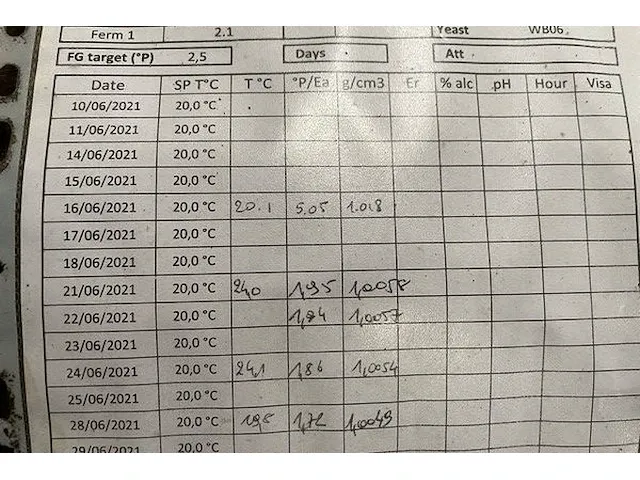 Ferm 1 2.1 Yeast WB06
FG target (°P) 2,5 Days Att
Date SP T°C T °C °P/Ea g/cm3 Er % alc pH Hour Visa
10/06/2021 20,0 °C
11/06/2021 20,0 °C
14/06/2021 20,0 °C
15/06/2021 20,0 °C
16/06/2021 20,0 °C 20.1 5.05 1.018
17/06/2021 20,0 °C
18/06/2021 20,0 °C
21/06/2021 20,0 °C 24,0 1,95 1,0058
22/06/2021 20,0 °C 1,94 1,0057
23/06/2021 20,0 °C
24/06/2021 20,0 °C 24,1 1,86 1,0054
25/06/2021 20,0 °C
28/06/2021 20,0 °C 19,5 1,72 1,0049
29/06/2021 20,0 °C